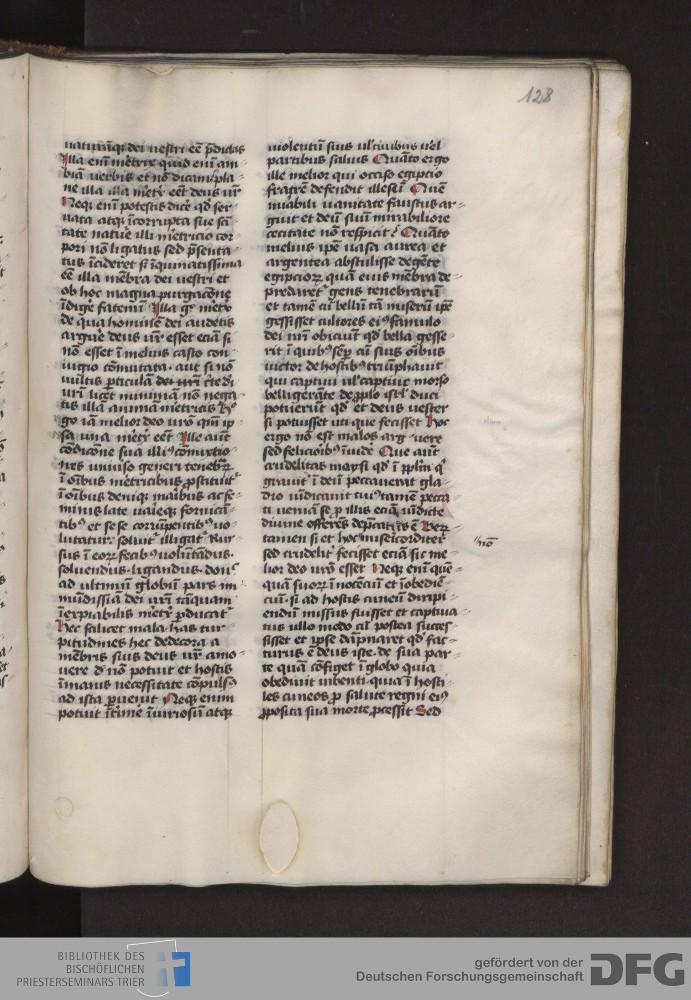 128
naturamq; dei uestri eē p̄dicas
Illa enī metrix quid enī am
biā uerbis et nō dicam pla
ne illa illa met͛x eēt deus ūr
Neq; enī potestis dice͛ qđ ser
uata atq; īcorrupta sue sc̄i
tate nature illi metricio cor
pori nō ligatus sed p̄senta
tus īcideret si īquinatissima
eē illa mēbra dei uestri et
ob hoc magna purgac̄one
īdige͛ fatemī Illa g͛ met͛x
de qua hominē dei audetis
argue͛ deus ūr esset eciā si
nō esset ī melius casto con
iugio cōmutata aut si nō
uultis particulā dei ur̄i
ur̄i licet minimā nō nega
tis illā animā metricis
go iam melior deo ur̄o qm̄ ip
sa una met͛x eēt Ille aūt
cōdicōne sua illi cōmixtio
nes uniuso generi tenebrar͛
ī oībus metricibus p̄stituit
ī oībus deniq; maribus ac fe
minis late uaieq; fornicā
tib⁹ et se se corrūpentib⁹ uo
lutatur soluit illigat͛ Rur
sus ī eor͛ fecib⁹ uolutādus
soluendus ligandus don⁹
ad ultimū globū pars in
mūdissiā dei ur̄i tāquam
īexpiabilis met͛x p̄ducat͛
Hec scilicet mala has tur
pitudines hec dedecora a
mēbris suis deus ūr amo
uere nō potuit et hostis
īmanis necessitate cōpuls⁹
ad ista p̄uenit Neq; enim
potuit īt͛ime īiuriosū atq;
uiolentū suis ultoribus uel
partibus saluis Quāto ergo
ille melior qui occiso egiptio
fratrē defendit illesū Quē
mirabili uanitate faustus ar-
guit et deū suū mirabiliore
cecitate nō respicit Quāto
melius ipē uasa aurea et
argentea abstulisse degēte
egipciorum quā eius mēbra de-
predaret͛ gens tenebrarū
et tamē cū bellū tā miserū ipē
gessisset cultores ei⁹ famulo
dei ur̄i obiciūt qđ bella gesse
rit ī quib⁹ sēp cū suis oībus
uictor de hostib⁹ triūphauit
qui captiui ul͛ captiue morso
belligerāte p̄ pp̄lo isr̄l duci
potuerūt qđ et deus uester
si potuisset utique fecisset Hoc
ergo nō est malos arguere
sed felicioib⁹ īuide͛ Que aūt
crudelitas maysi qđ ī pplm̄ q͛
grauit͛ ī deū peccauerat gla
dio uīdicauit cui⁹ tamē pecca
ti ueniā se p illis eciā uīdicte
diuine offerēs dep̄cat⁹ ē
tamen si et hoc misericorditer
sed crudelit͛ fecisset eciā sic me
lior deo ur̄o esset Neq; enī quē
quā suor͛ īnocētū et īobediē-
cū si ad hostis cuneū dirripi-
endū missus fuisset et captiua-
tus ullo modo cū postea succes-
sisset et ipse dāpnaret qđ fac-
turus ē deus iste de sua par-
te quā cōfiget ī globo quia
obediuit iubenti quia ī hosti-
les cuneos p salute regni ei⁹
p̄posita sua morte pcessit Sed
nō
BIBLIOTHEK DES
BISCHÖFLICHEN
PRIESTERSEMINARS TRIER
gefördert von der
Deutschen Forschungsgemeinschaft
DFG